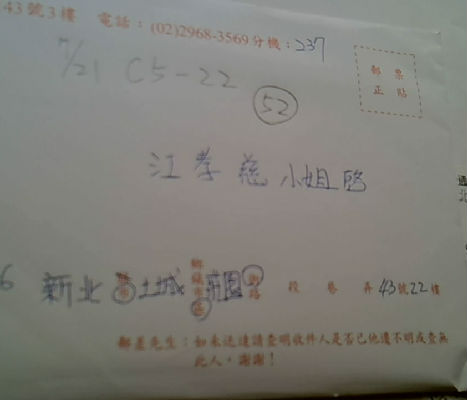 43號3樓 電話：(02)2968-3569分機：237
7/21 C5-22
52
郵票
正貼
江孝慈 小姐 啓
6 新北 市 土城 區 街 段 巷 弄 43 號 22 樓
郵差先生：如未送達請查明收件人是否已他遷不明或查無
此人，謝謝！
北